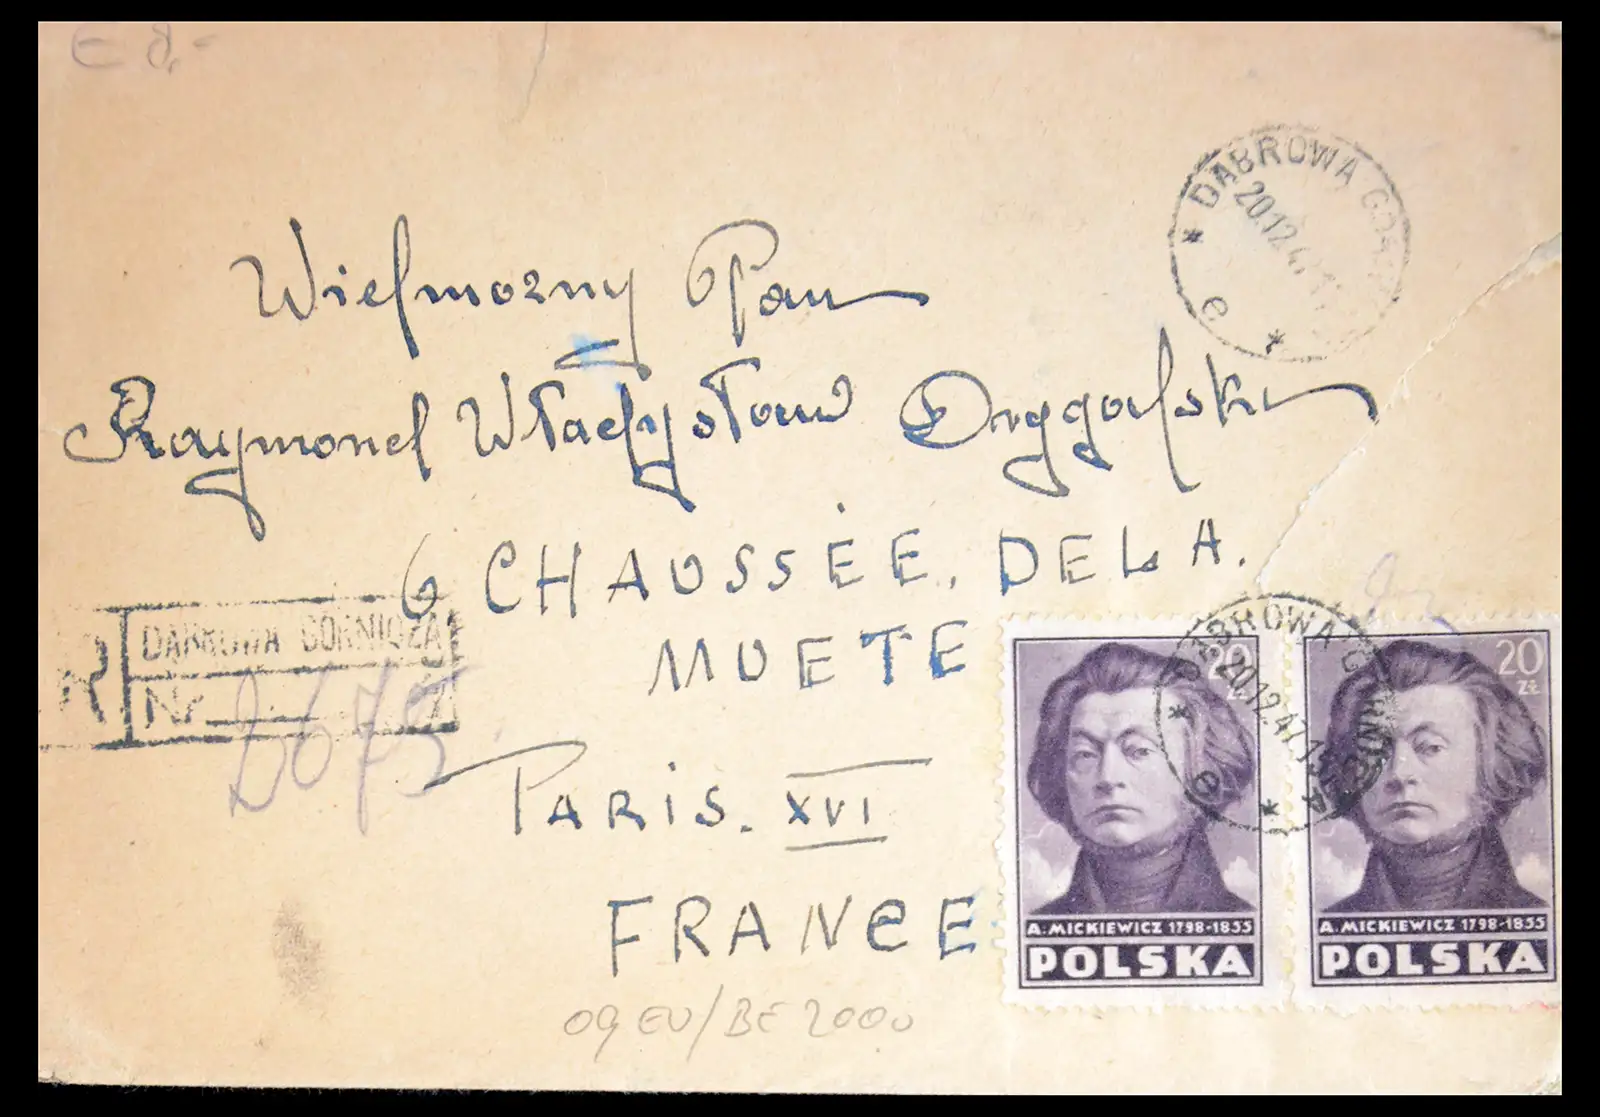 E 8.-
* DĄBROWA GÓRN
20.12.47
e *
Wielmożny Pan
Raymond Władysław Drygalski
6 CHAUSSÉE. DE LA.
MUETE
PARIS. XVI
FRANCE
R DĄBROWA GÓRNICZA
Nr 2675
* DĄBROWA GÓRNICZA
20.12.47.15
e *
20 ZŁ
A. MICKIEWICZ 1798-1855
POLSKA
20 ZŁ
A. MICKIEWICZ 1798-1855
POLSKA
09 EU/BE 2000